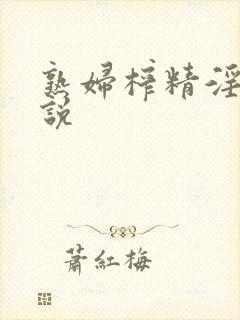 熟婦榨精淫
說
蕭紅梅